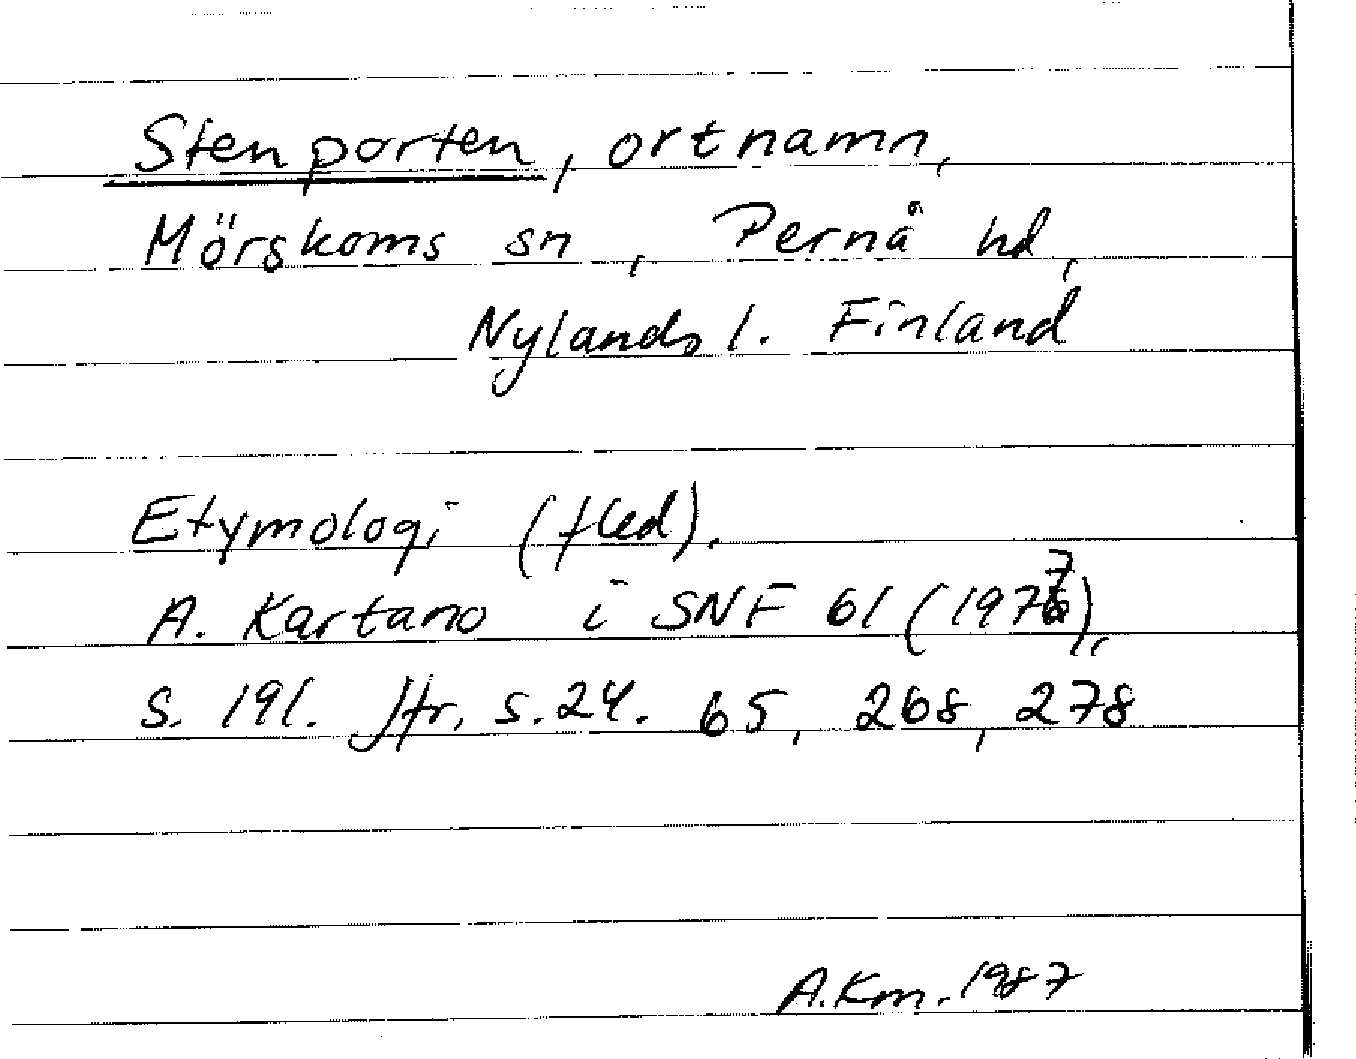 Stenporten, ortnamn,
Mörskoms sn, Pernå hd,
Nylands l. Finland
Etymologi (fled).
A. Kartano i SNF 61 (1977),
s. 191. Jfr. s. 24. 65, 268, 278
A.Km. 1987